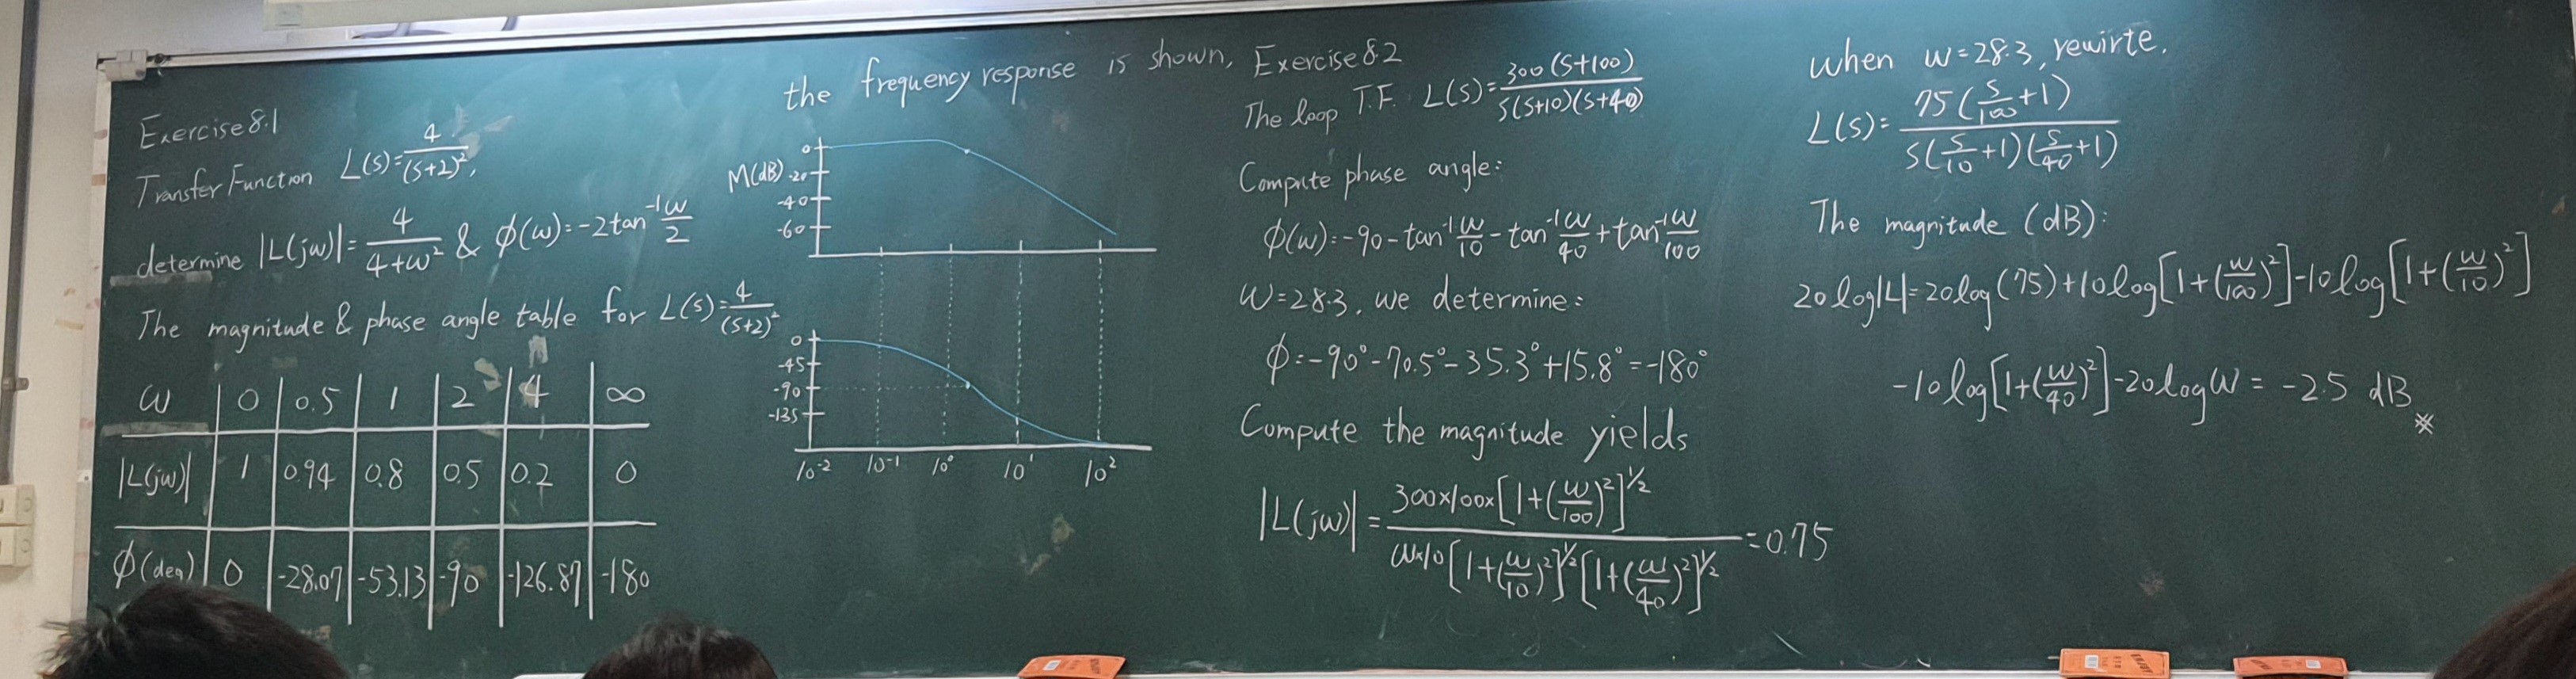 Exercise 8.1
Transfer Function L(s)=4/(s+2)²,
determine |L(jω)|=4/(4+ω²) & φ(ω)=-2tan⁻¹ω/2
The magnitude & phase angle table for L(s)=4/(s+2)²
ω 0 0.5 1 2 4 ∞
|L(jω)| 1 0.94 0.8 0.5 0.2 0
φ(deg) 0 -28.07 -53.13 -90 -126.87 -180
the frequency response is shown,
M(dB)
0
-20
-40
-60
0
-45
-90
-135
10⁻² 10⁻¹ 10⁰ 10¹ 10²
Exercise 8.2
The loop T.F. L(s)=300(s+100)/s(s+10)(s+40)
Compute phase angle:
φ(ω)=-90-tan⁻¹ω/10-tan⁻¹ω/40+tan⁻¹ω/100
ω=28.3, we determine:
φ=-90°-70.5°-35.3°+15.8°=-180°
Compute the magnitude yields
|L(jω)|=300×100×[1+(ω/100)²]^½/ω×10[1+(ω/10)²]^½[1+(ω/40)²]^½=0.75
when ω=28.3, rewirte,
L(s)=75(s/100+1)/s(s/10+1)(s/40+1)
The magnitude (dB):
20log|L|=20log(75)+10log[1+(ω/100)²]-10log[1+(ω/10)²]
-10log[1+(ω/40)²]-20logω=-2.5 dB ※